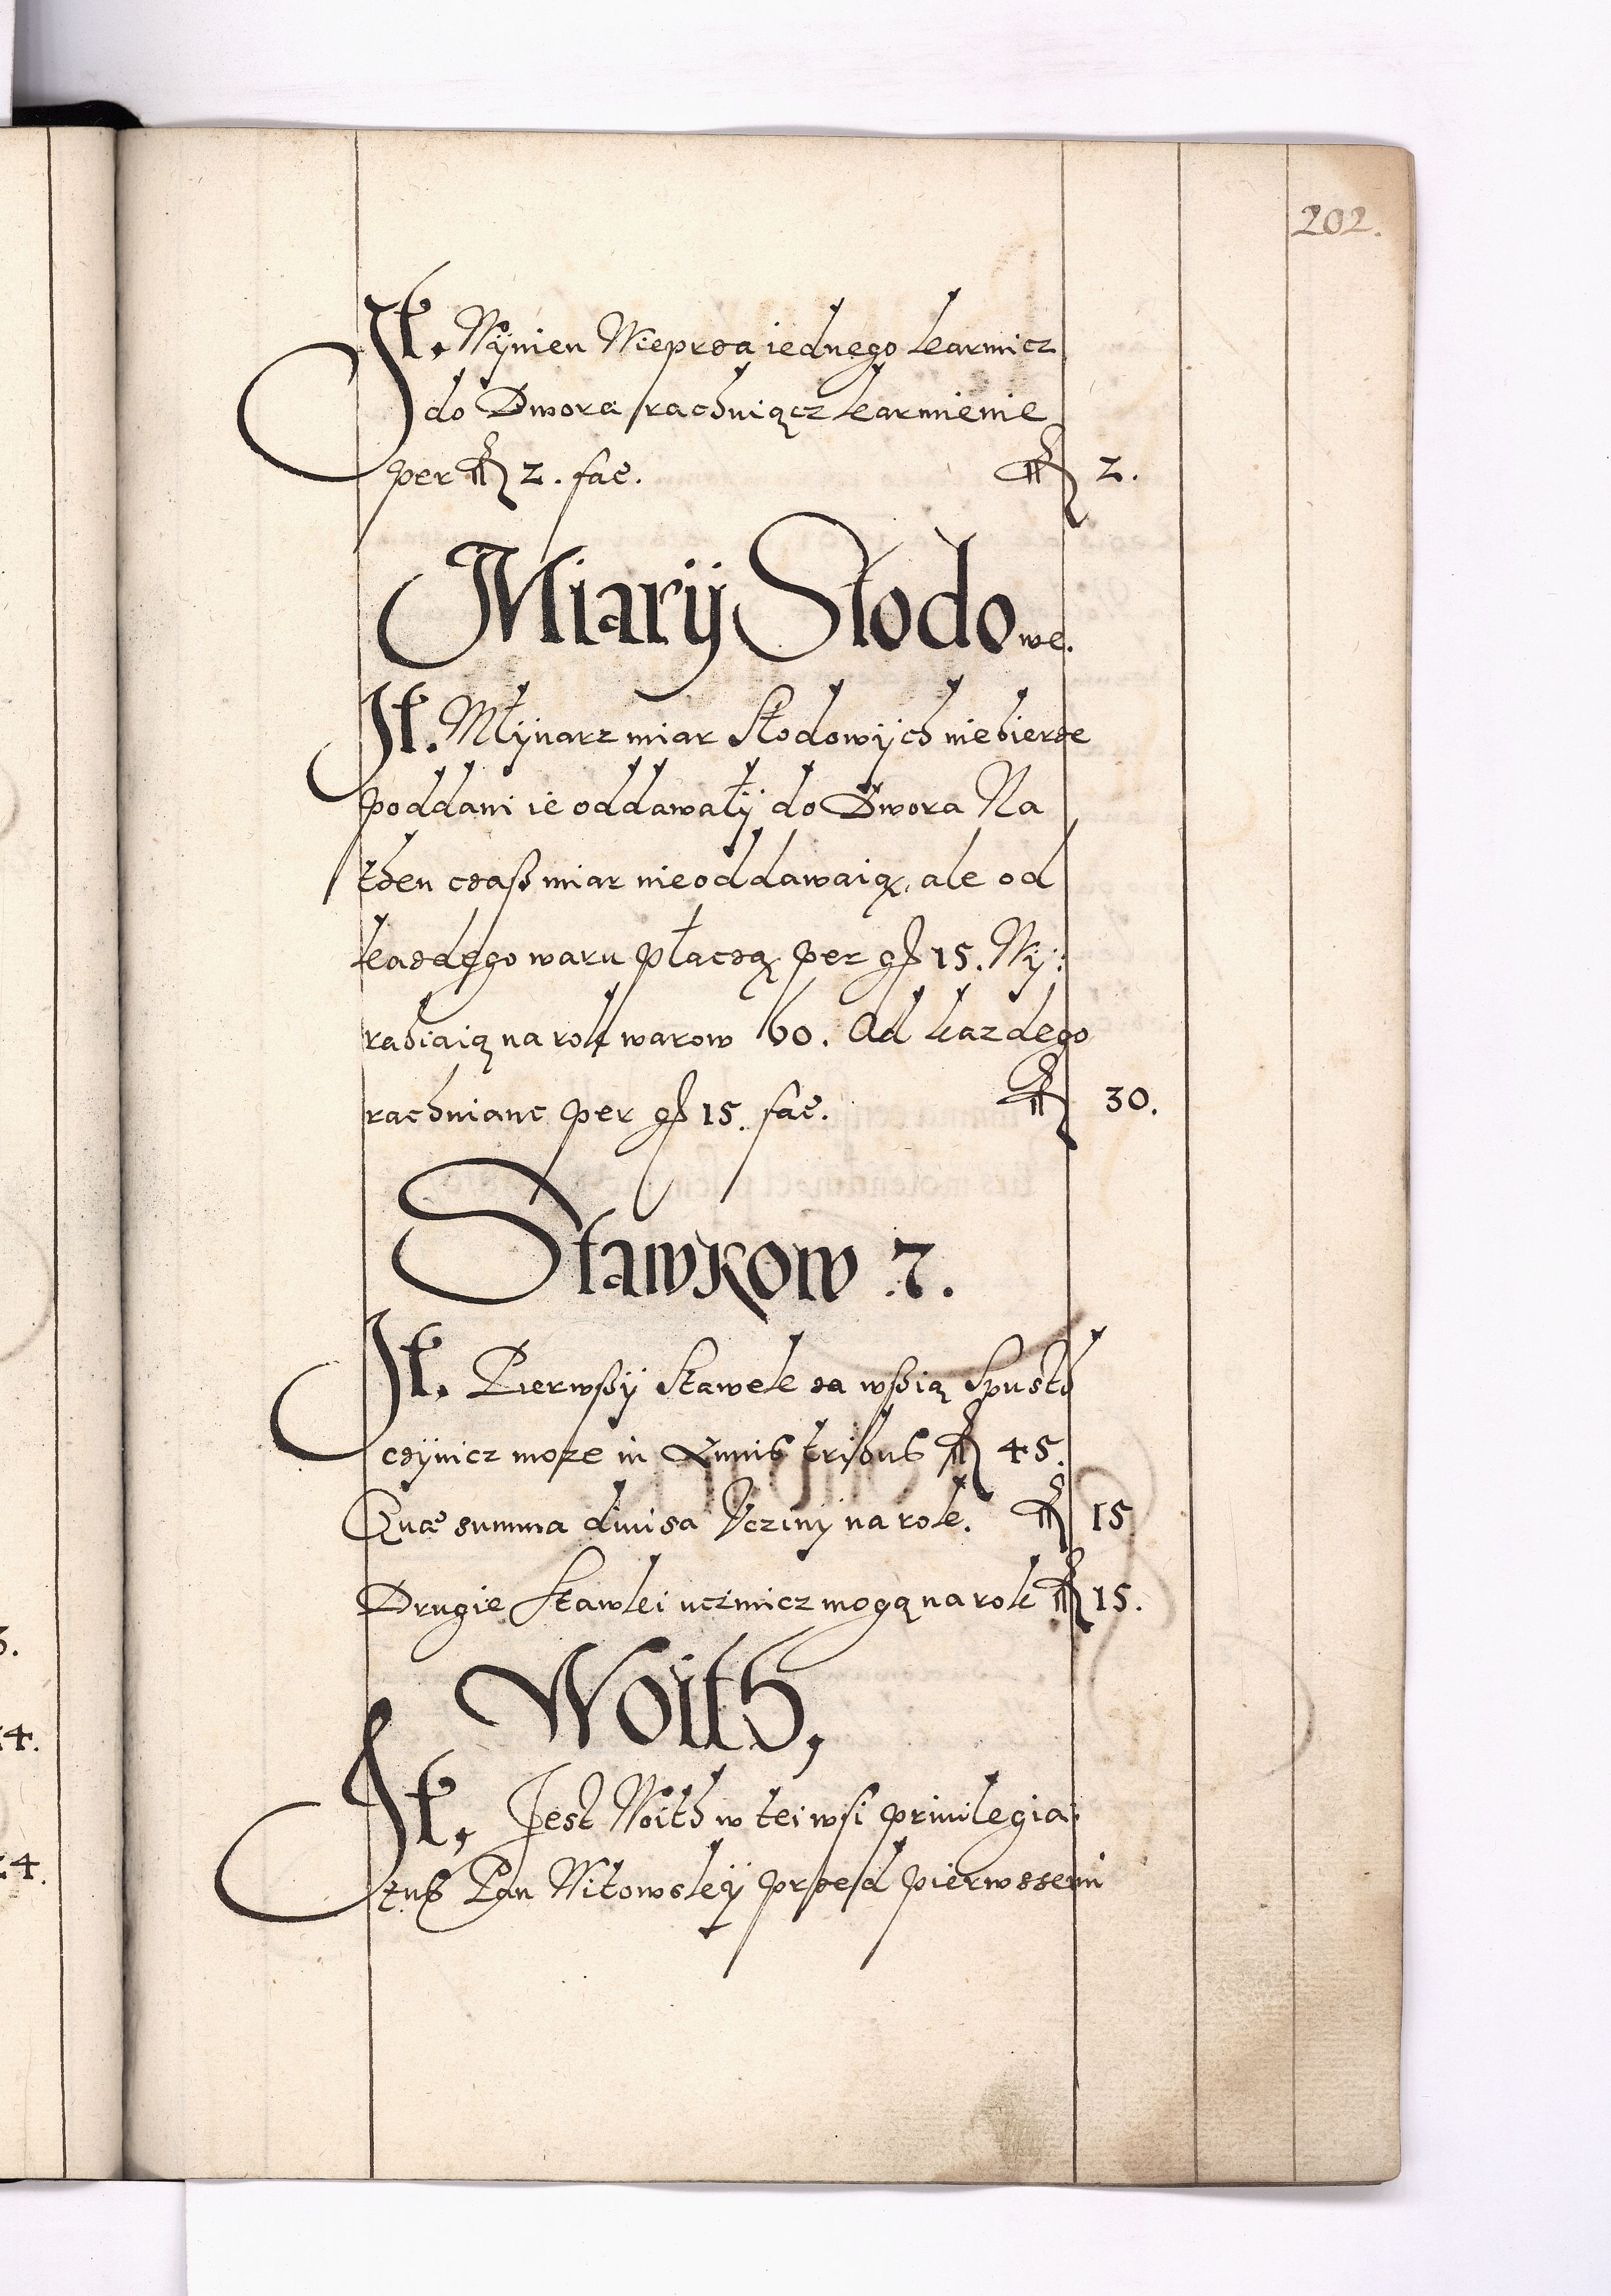 202.
It. Wÿnien Wieprza iednego karmicz
do Dwora rachuiącz karmienie
per fl 2. fac. fl 2.
Miarÿ Słodowe.
It. Młÿnarz miar Słodowÿch niebierze
poddani ie oddawalÿ do Dwora Na
then czasß miar nieoddawaią, ale od
kazdego waru płaczą per gr 15. Wÿ:
rabiaią na rok warow 60. Od kazdego
rachuianc per gr 15. fac. fl 30.
Stawkow 7.
It. Pierwßÿ Stawek za wßią Spusth
czÿnicz moze in Annis tribus fl 45.
Quæ summa diuisa Vcziny na rok. fl 15
Drugie Stawki uczinicz mogą na rok fl 15.
Woith,
It, Jest Woith w tei wsi priuilegia:
tus Pan Witowskÿ przed pierwssem
3.
14.
24.